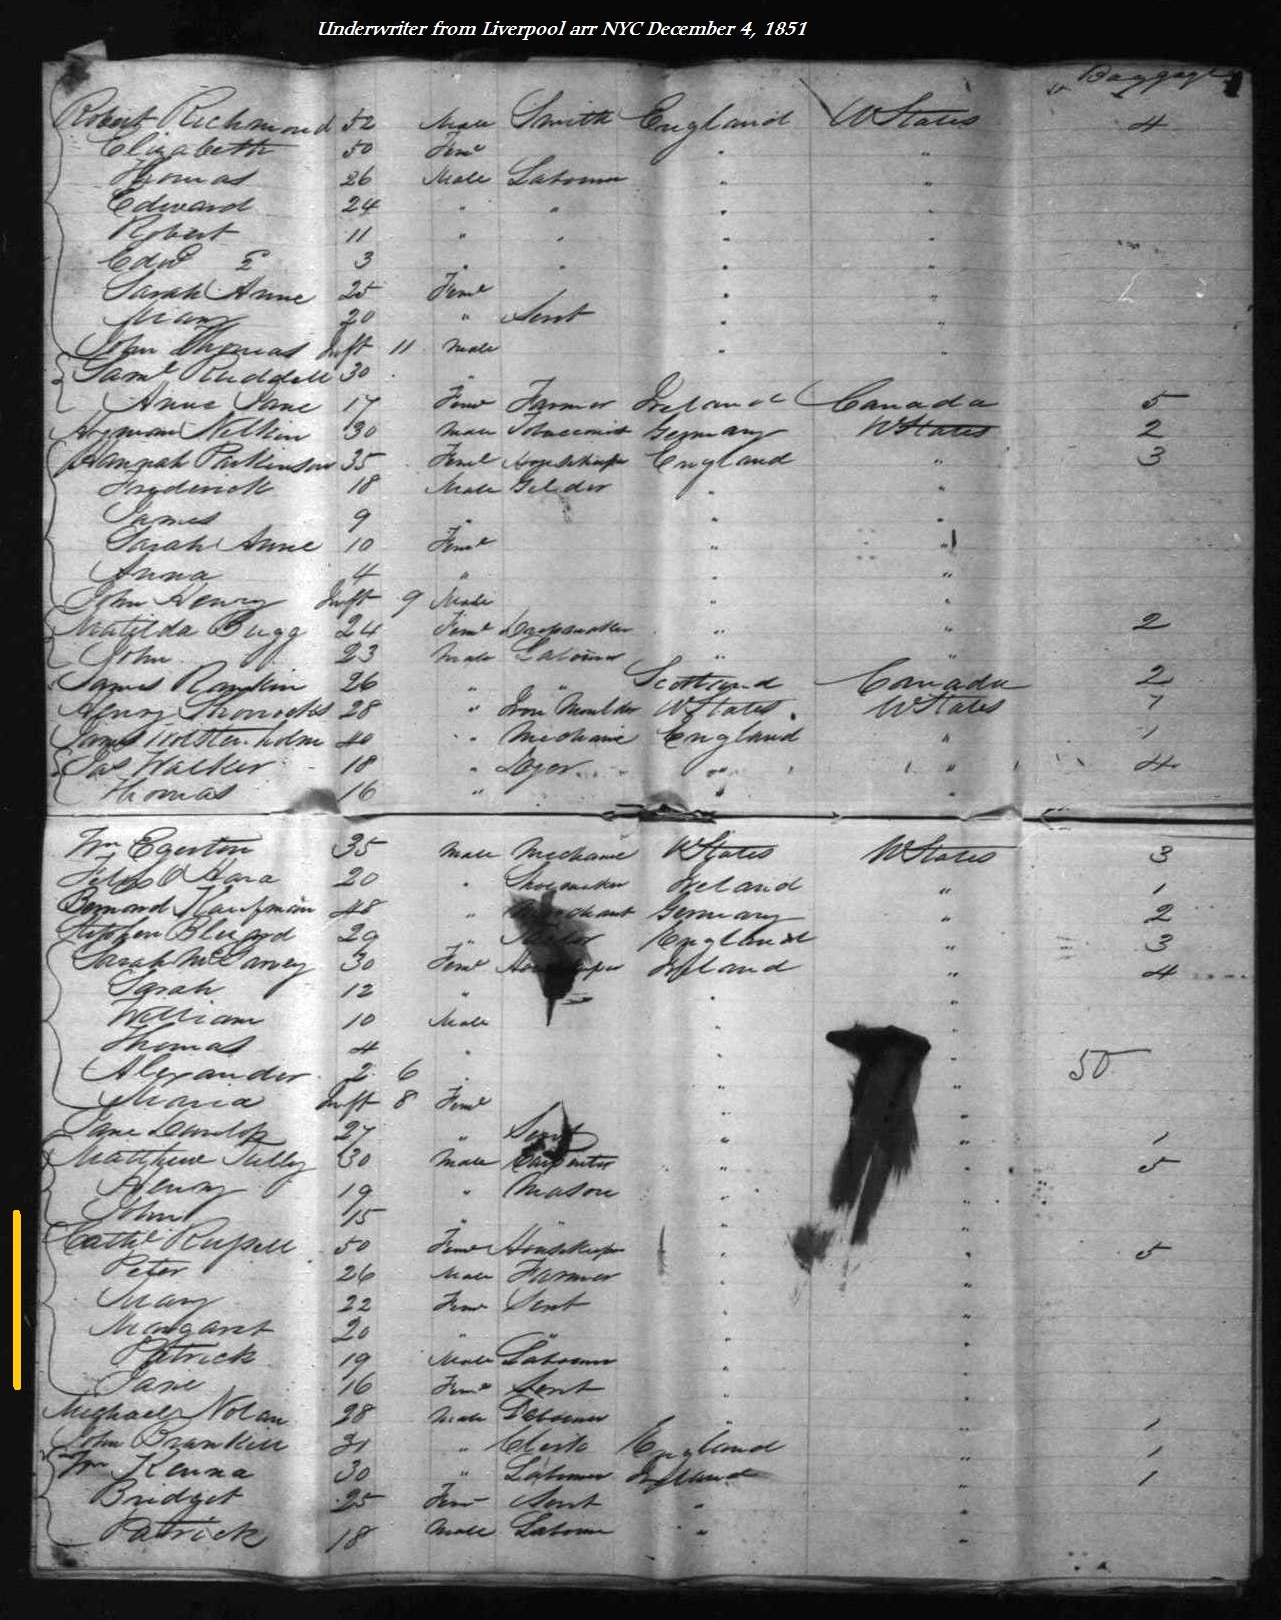 Underwriter from Liverpool arr NYC December 4, 1851
Baggage
Robert Richmond 52 Male Smith England U States 4
Elizabeth 50 Fem " "
Thomas 26 Male Labourer " "
Edward 24 " " " "
Robert 11 " " " "
Edwd 2 3 " " " "
Sarah Anne 25 Feml " "
Mary 20 " Servt " "
John Thomas Inft 11 Male " "
Saml Ruddell 30 "
Anne Jane 17 Feml Farmer Ireland Canada 5
Hyman 30 Male Tobacconist Germany U States 2
Hannah Parkinson 35 Feml Housekeeper England " 3
Frederick 18 Male Gilder " "
James 9 " " "
Sarah Anne 10 Feml " "
Anna 4 " " "
John Henry Inft 9 Male " "
Matilda Bugg 24 Feml " " 2
John 23 Male Labourer " "
James Rankin 26 " " Scotland Canada 2
Henry 28 " Iron Moulder U States U States 7
James 40 " Mechanic England " 1
Jas Walker 18 " Dyer " " 4
Thomas 16 " " "
Wm Egerton 35 Male Mechanic U States U States 3
O'Hara 20 " Shoemaker Ireland " 1
Bernard Kaufman 48 " Merchant Germany " 2
Stephen 29 " England " 3
Sarah McGarvey 30 Feml Housekeeper Ireland " 4
Sarah 12 " " "
William 10 Male " "
Thomas 4 " " "
Alexander 2 6 " " " 50
Maria Inft 8 Feml " "
Jane Dunlop 27 " Servt " " 1
Matthew Tully 30 Male Carpenter " " 5
Henry 19 " Mason " "
John 15 " " " "
Cathe Russell 50 Feml Housekeeper " " 5
Peter 26 Male Farmer " "
Mary 22 Feml Servt " "
Margaret 20 " " " "
Patrick 19 Male Labourer " "
Jane 16 Feml Servt " "
Michael Nolan 28 Male Labourer " " 1
John 31 " Clerk England " 1
Wm Kenna 30 " Labourer Ireland " 1
Bridget 25 Fem Servt " "
Patrick 18 Male Labourer " "